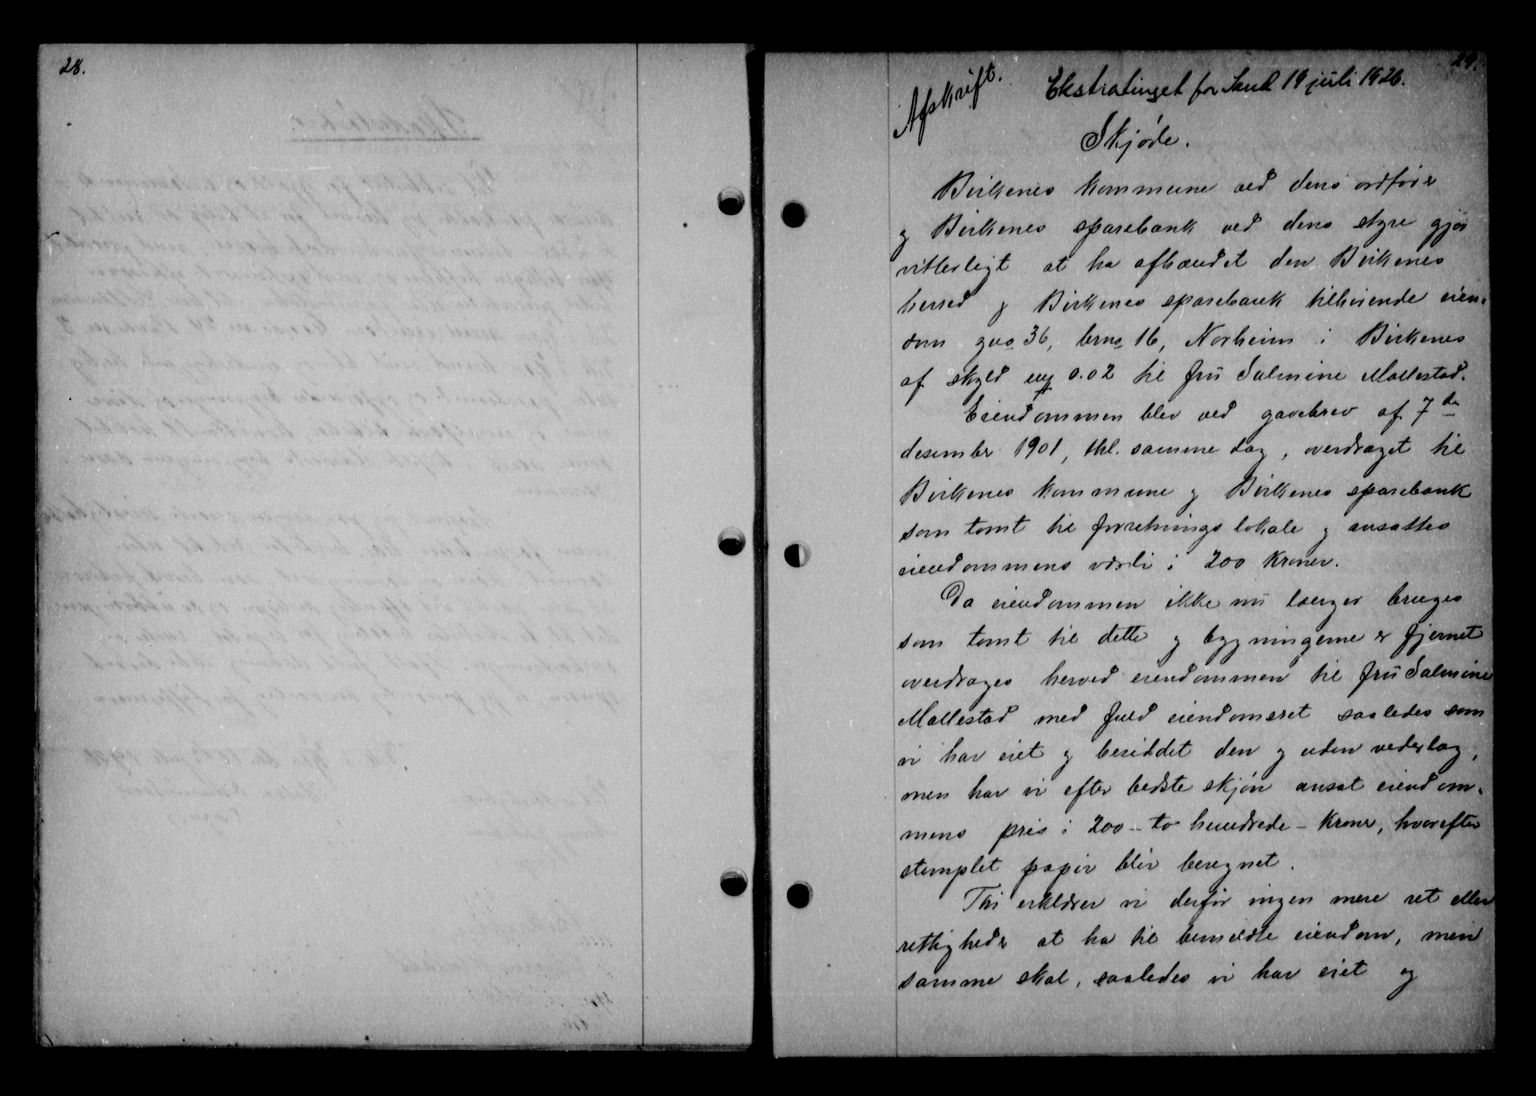 28.
29.
Afskrift.
Ekstratinget for Sand 19 juli 1926.
Skjøde.
Birkenes kommune ved dens ordfører
og Birkenes sparebank ved dens styre gjør
vitterligt at ha afhændet den Birkenes
herred og Birkenes sparebank tilhørende eien-
dom gno 36, brno 16, Norheim i Birkenes
af skyld 0.02 til fru Salmine Mollestad.
Eiendommen blev ved gavebrev af 7de
desember 1901, thl. samme dag, overdraget til
Birkenes kommune og Birkenes sparebank
som tomt til forretningslokale og ansattes
eiendommens værdi i 200 kroner.
Da eiendommen ikke nu længer bruges
som tomt til dette og bygningerne er fjernet
overdrages herved eiendommen til fru Salmine
Mollestad med fuld eiendomsret saaledes som
vi har eiet og besiddet den og uden vederlag,
men har vi efter bedste skjøn ansat eiendom-
mens pris i 200 - to hundrede - kroner, hvorefter
stemplet papir blir beregnet.
Thi erklærer vi derfor ingen mere ret eller
rettigheder at ha til bemeldte eiendom, men
samme skal, saaledes vi har eiet og